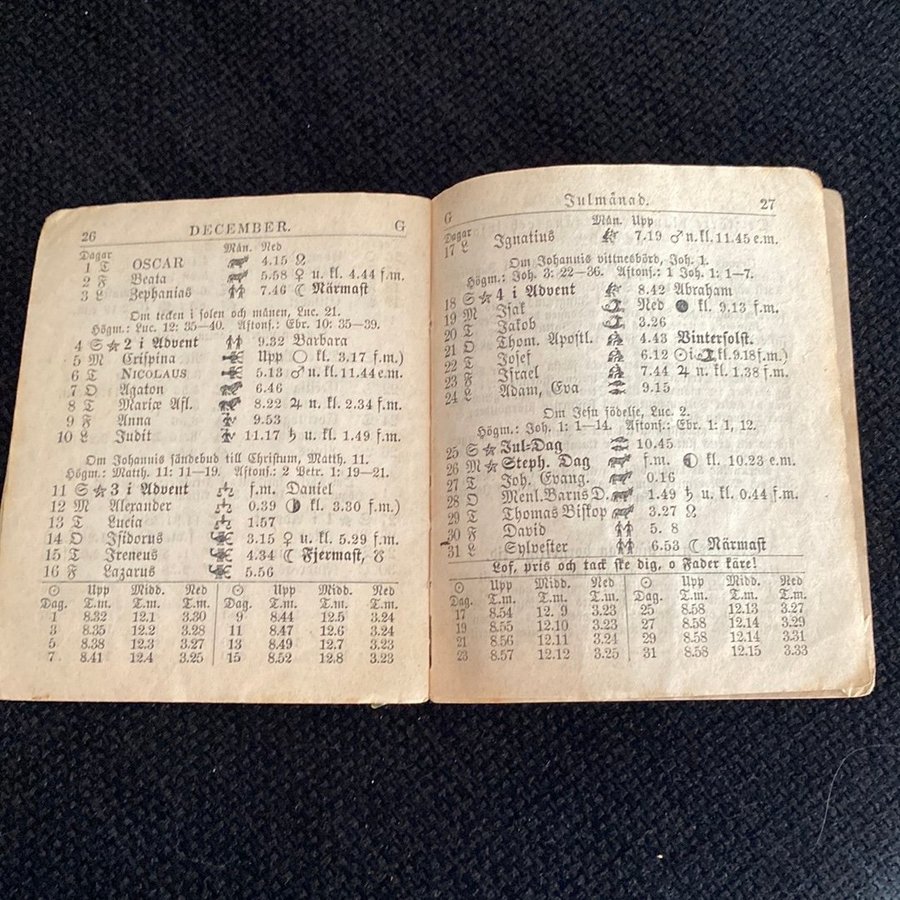 26 DECEMBER. G
Dagar Mån. Ned
1 T OSCAR 4.15 ☊
2 F Beata 5.58 ♀ u. kl. 4.44 f.m.
3 L Zephanias 7.46 ☾ Närmast
Om tecken i solen och månen, Luc. 21.
Högm.: Luc. 12: 35—40. Aftons.: Ebr. 10: 35—39.
4 S ☆ 2 i Advent 9.32 Barbara
5 M Crispina Upp ○ kl. 3.17 f.m.)
6 T NICOLAUS 5.13 ♂ u. kl. 11.44 e.m.
7 O Agaton 6.46
8 T Mariæ Afl. 8.22 ♃ n. kl. 2.34 f.m.
9 F Anna 9.53
10 L Judit 11.17 ♄ u. kl. 1.49 f.m.
Om Johannis sändebud till Christum, Matth. 11.
Högm.: Matth. 11: 11—19. Aftons.: 2 Petr. 1: 19—21.
11 S ☆ 3 i Advent f.m. Daniel
12 M Alexander 0.39 ◑ kl. 3.30 f.m.)
13 T Lucia 1.57
14 O Isidorus 3.15 ♀ u. kl. 5.29 f.m.
15 T Ireneus 4.34 ☾ Fjermast, ☋
16 F Lazarus 5.56
☉ Upp Midd. Ned ☉ Upp Midd. Ned
Dag. T.m. T.m. T.m. Dag. T.m. T.m. T.m.
1 8.32 12.1 3.30 9 8.44 12.5 3.24
3 8.35 12.2 3.28 11 8.47 12.6 3.24
5 8.38 12.3 3.27 13 8.49 12.7 3.23
7 8.41 12.4 3.25 15 8.52 12.8 3.23
G Julmånad. 27
Dagar Mån. Upp
17 L Ignatius 7.19 ♂ n. kl. 11.45 e.m.
Om Johannis vittnesbörd, Joh. 1.
Högm.: Joh. 3: 22—36. Aftons.: 1 Joh. 1: 1—7.
18 S ☆ 4 i Advent 8.42 Abraham
19 M Isak Ned ● kl. 9.13 f.m.
20 T Jakob 3.26
21 O Thom. Apostl. 4.43 Vintersolst.
22 T Josef 6.12 ☉ i ♑ kl. 9.18 f.m.)
23 F Israel 7.44 ♃ n. kl. 1.38 f.m.
24 L Adam, Eva 9.15
Om Jesu födelse, Luc. 2.
Högm.: Joh. 1: 1—14. Aftons.: Ebr. 1: 1, 12.
25 S ☆ Jul-Dag 10.45
26 M ☆ Steph. Dag f.m. ◐ kl. 10.23 e.m.
27 T Joh. Evang. 0.16
28 O Menl. Barns D. 1.49 ♄ u. kl. 0.44 f.m.
29 T Thomas Biskop 3.27 ☊
30 F David 5. 8
31 L Sylvester 6.53 ☾ Närmast
Lof, pris och tack ske dig, o Fader käre!
☉ Upp Midd. Ned ☉ Upp Midd. Ned
Dag. T.m. T.m. T.m. Dag. T.m. T.m. T.m.
17 8.54 12. 9 3.23 25 8.58 12.13 3.27
19 8.55 12.10 3.23 27 8.58 12.14 3.29
21 8.56 12.11 3.24 29 8.58 12.14 3.31
23 8.57 12.12 3.25 31 8.58 12.15 3.33